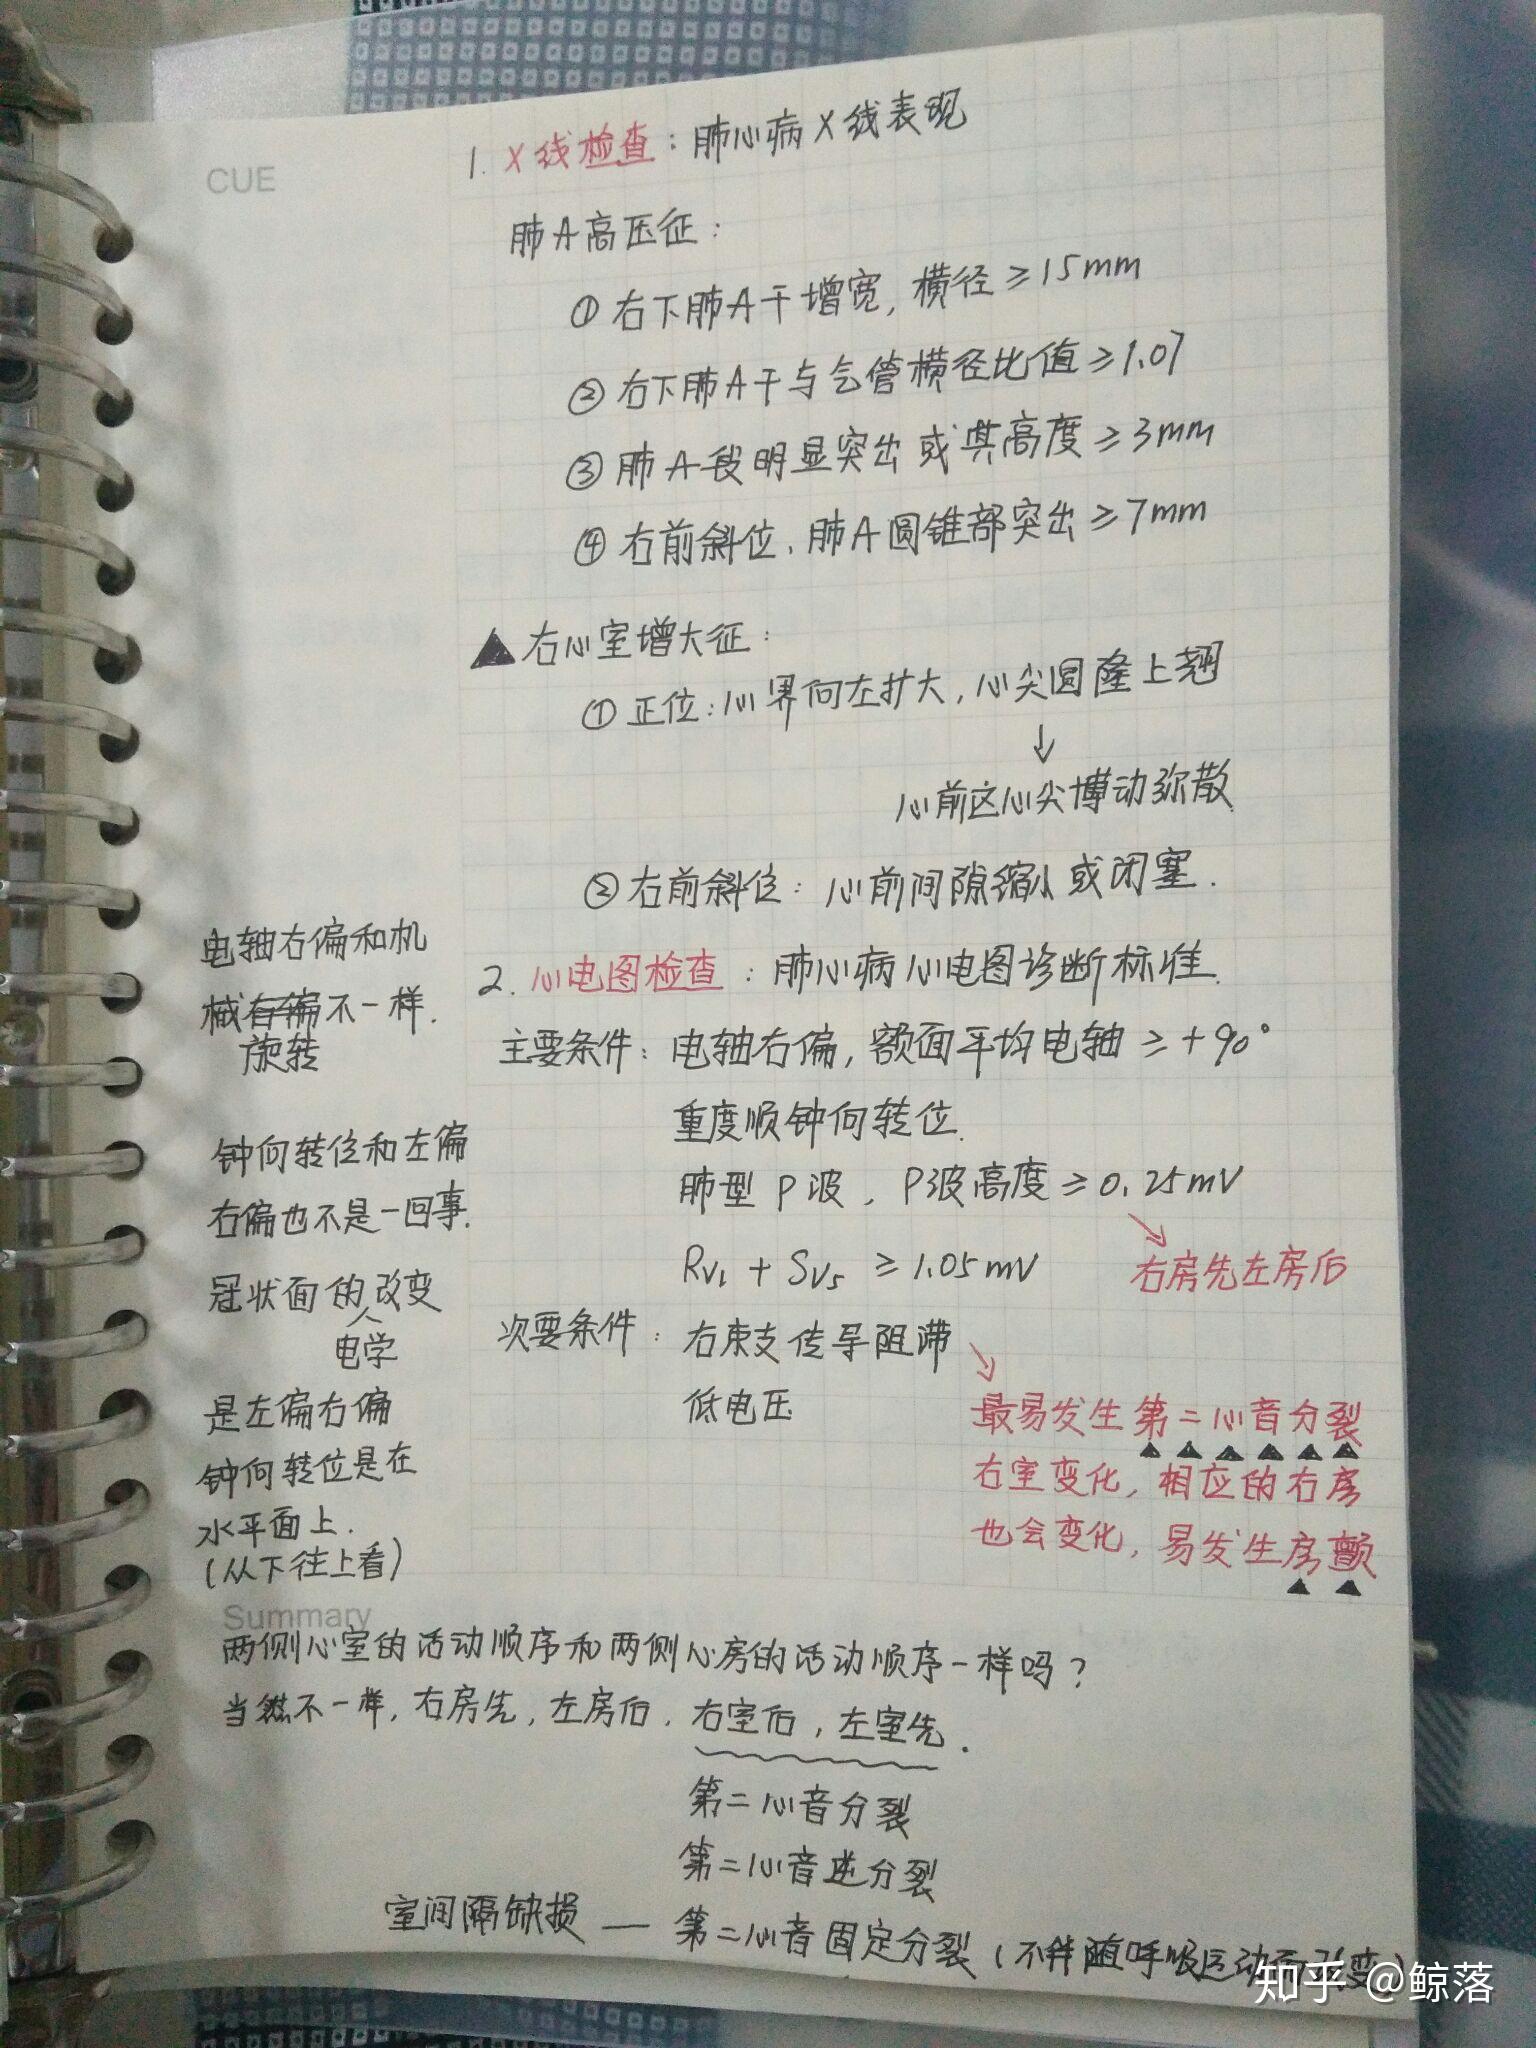 CUE
1. X线检查：肺心病X线表现
肺A高压征：
①右下肺A干增宽，横径≥15mm
②右下肺A干与气管横径比值≥1.07
③肺A段明显突出或其高度≥3mm
④右前斜位、肺A圆锥部突出≥7mm
▲右心室增大征：
①正位：心界向左扩大，心尖圆隆上翘
↓
心前区心尖博动弥散
②右前斜位：心前间隙缩小或闭塞.
2. 心电图检查：肺心病心电图诊断标准.
主要条件：电轴右偏，额面平均电轴≥+90°
重度顺钟向转位.
肺型P波，P波高度≥0.25mV
右房先左房后
RV1+SV5≥1.05mV
次要条件：右束支传导阻滞
低电压
最易发生第二心音分裂
右室变化，相应的右房
也会变化，易发生房颤
电轴右偏和机
械右偏不一样.
旋转
钟向转位和左偏
右偏也不是一回事.
冠状面的改变
电学
是左偏右偏
钟向转位是在
水平面上.
(从下往上看)
Summary
两侧心室的活动顺序和两侧心房的活动顺序一样吗？
当然不一样，右房先，左房后，右室后，左室先.
第二心音分裂
第二心音逆分裂
室间隔缺损 — 第二心音固定分裂(不伴随呼吸运动而改变)
知乎 @鲸落